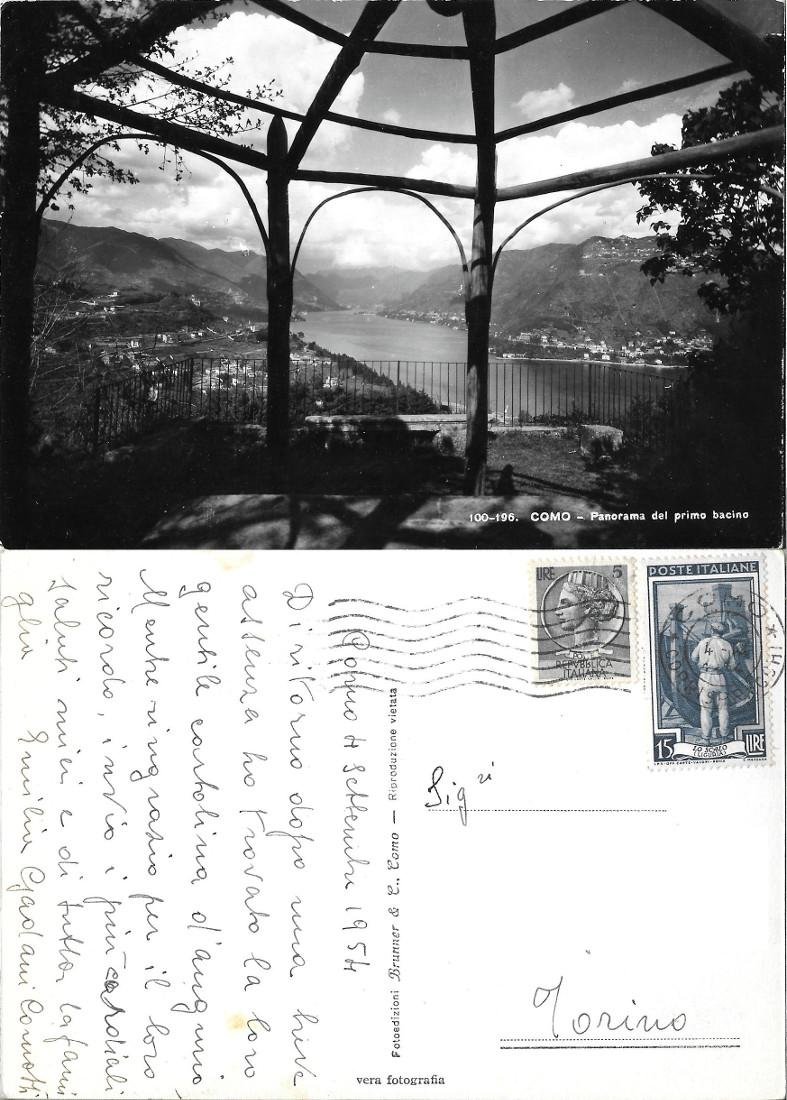 100-196. COMO - Panorama del primo bacino
Como 4 Settembre 1954
Di ritorno dopo una breve
assenza ho trovato la loro
gentile cartolina d'augurio
Mentre ringrazio per il loro
ricordo, invio i più cordiali
saluti miei e di tutta la fami
glia
Emilia
Fotoedizioni Brunner & C., Como — Riproduzione vietata
vera fotografia
LIRE 5
POSTE
REPVBBLICA
ITALIANA
POSTE ITALIANE
LO SCALO
(LIGURIA)
15 LIRE
COMO
Sig.ri
Torino